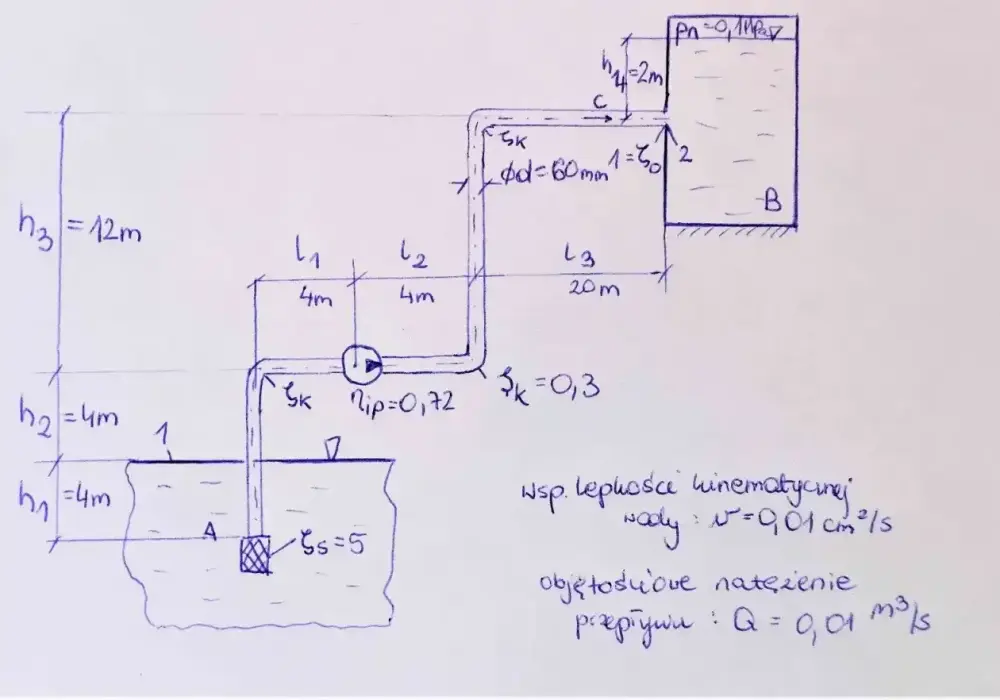 pn=0,1MPa
h4=2m
c
ζk
ϕd=60mm
1=ζo
2
B
h3 = 12m
l1
4m
l2
4m
l3
20m
ζk
ηip=0,72
ζk = 0,3
h2 = 4m
1
h1 = 4m
A
ζs=5
wsp. lepkości kinematycznej
wody : ν=0,01 cm²/s
objętościowe natężenie
przepływu : Q = 0,01 m³/s